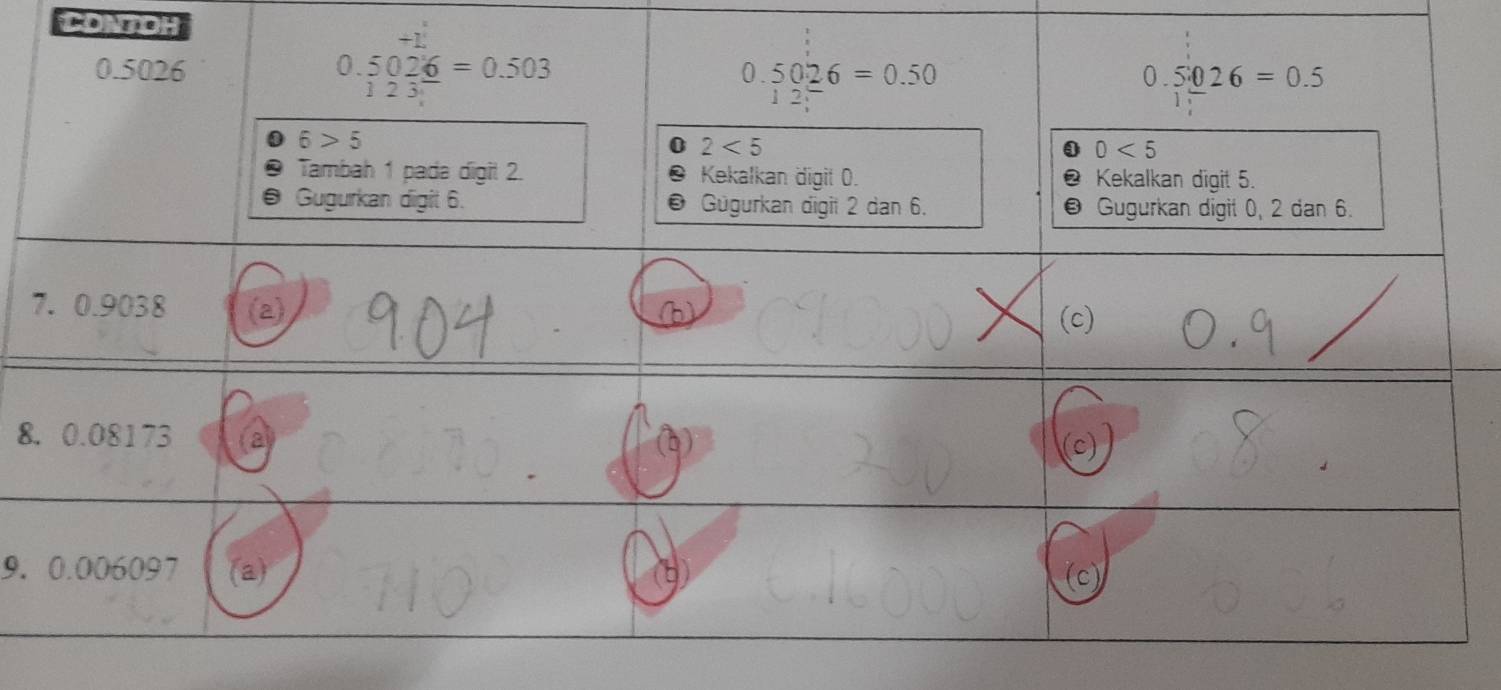 CONTOH
+1
0.5026 0.5026 = 0.503 0.5026 = 0.50 0.5026 = 0.5
1 2 3 1 2 1
❶ 6 > 5
❷ Tambah 1 pada digit 2.
❸ Gugurkan digit 6.
❶ 2 < 5
❷ Kekalkan digit 0.
❸ Gugurkan digit 2 dan 6.
❶ 0 < 5
❷ Kekalkan digit 5.
❸ Gugurkan digit 0, 2 dan 6.
7. 0.9038 (a) 9.04 (b) (c) 0.9
8. 0.08173 (a) (b) (c) 8
9. 0.006097 (a) (b) (c)